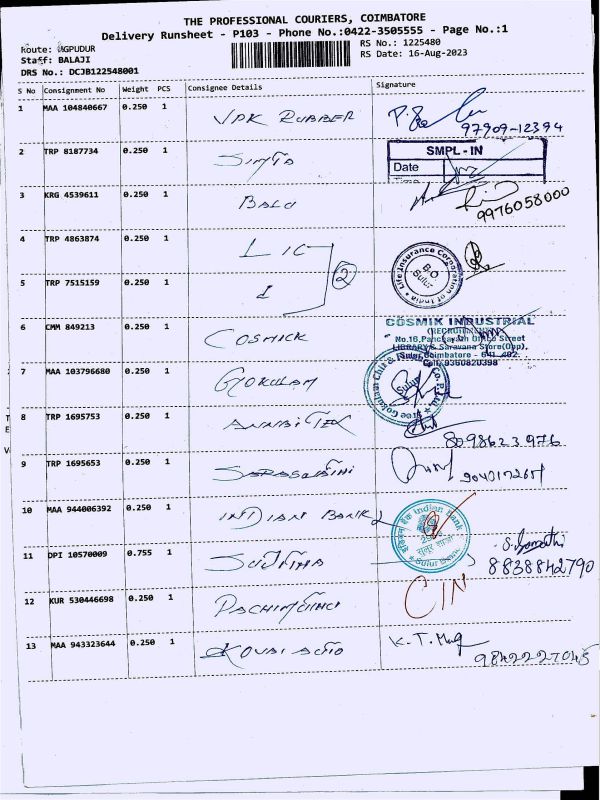 THE PROFESSIONAL COURIERS, COIMBATORE
Delivery Runsheet - P103 - Phone No.:0422-3505555 - Page No.:1
Route: VAGPUDUR
RS No.: 1225480
Staff: BALAJI
RS Date: 16-Aug-2023
DRS No.: DCJB122548001
S No Consignment No Weight PCS Consignee Details Signature
1 MAA 104840667 0.250 1 VPK RUBBER
97909-12394
2 TRP 8187734 0.250 1 SIMTA SMPL - IN
Date
3 KRG 4539611 0.250 1 BALU
9976058000
4 TRP 4863874 0.250 1 LIC 2 Life Insurance Corporation of India B.O Sulur
5 TRP 7515159 0.250 1
6 CMM 849213 0.250 1 COSMICK COSMIK INDUSTRIAL
(RECRUITMENT)
No.16,Panchayath Office Street
LIBRARY & Saravana Store(Opp),
Sulur,Coimbatore - 641 402.
Cell:9360820398
7 MAA 103796680 0.250 1 GOKULAM Sulur
8 TRP 1695753 0.250 1
8098623976
9 TRP 1695653 0.250 1
10 MAA 944006392 0.250 1 INDIAN BANK Indian Bank
Sulur
11 DPI 10570009 0.755 1 SUJTHA
8838842790
12 KUR 530446698 0.250 1 CIN
13 MAA 943323644 0.250 1 KOVAI AUTO K.T.
9842227045